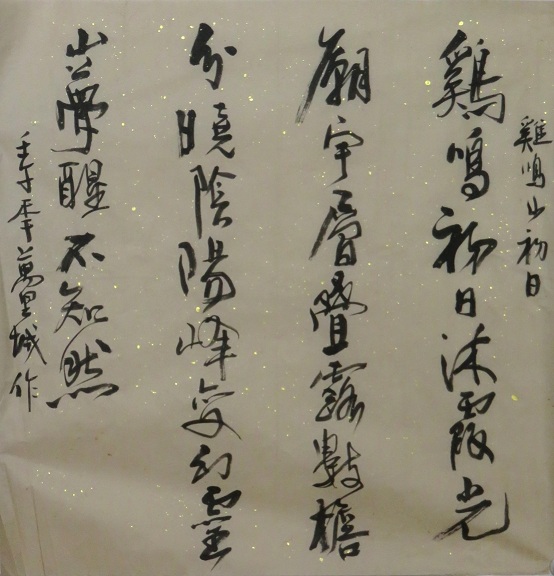 雞鳴山初日
鷄鳴初日沐霞光
廟宇層疊露數檐
分曉陰陽峰变幻靈
山夢醒不知然
壬午年萬里城作